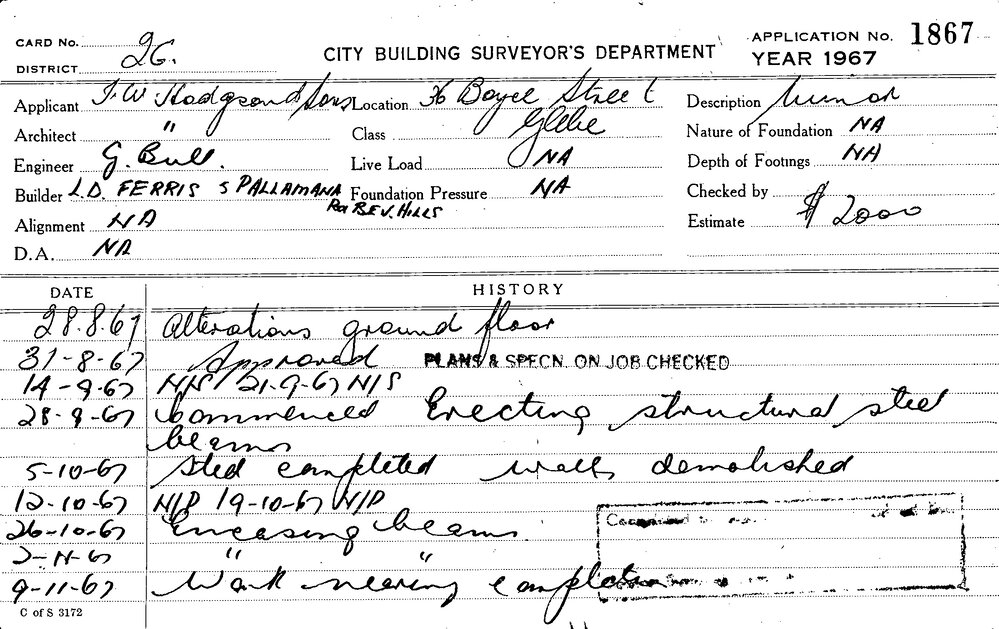 CARD No. 26.
DISTRICT
CITY BUILDING SURVEYOR'S DEPARTMENT
APPLICATION No. 1867
YEAR 1967
Applicant F.W Hodgson & Sons Location 36 Boyce Street Glebe Description Minor
Architect " Class Nature of Foundation NA
Engineer G. Bull. Live Load NA Depth of Footings NA
Builder L.D. FERRIS 5 PALLAMANA Foundation Pressure NA Checked by
BEV. HILLS
Alignment NA Estimate $ 2000
D.A. NA
DATE HISTORY
28.8.67 Alterations ground floor
31-8-67 Approved PLANS & SPECN. ON JOB CHECKED
14-9-67 N/S 21-9-67 N/S
28-9-67 Commenced Erecting structural steel
beams
5-10-67 Steel completed walls demolished
12-10-67 N/P 19-10-67 N/P
26-10-67 Encasing beams
2-11-67 " "
9-11-67 Work nearing completion
C of S 3172